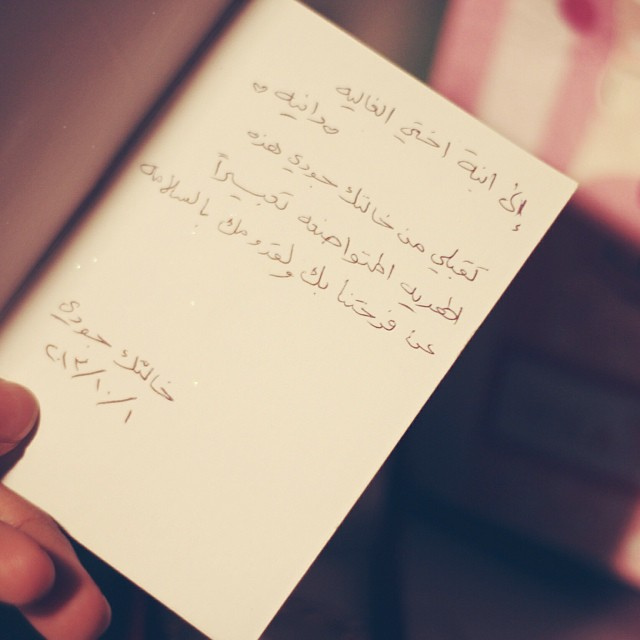 إلى ابنة اختي الغاليه
♡ دانيه ♡
تقبلي من خالتك جودي هذه
الهديه المتواضعه تعبيراً
عن فرحتنا بك ولقدومك بالسلامه
خالتك جودي
٢٠١٣/١٠/١